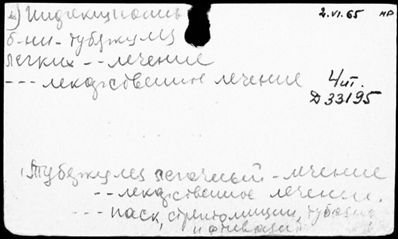 2.VI.65
б-ни - туберкулез
легких -- лечение
--- лекарственное лечение
4 шт.
Д 33195
Туберкулез легочный - лечение
-- лекарственное лечение.
--- паск, стрептомицин, тубазид
и фтивазид